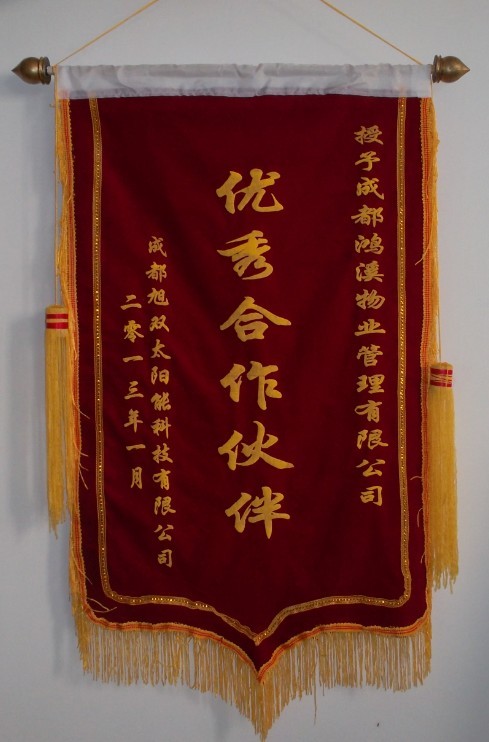 授予成都鸿溪物业管理有限公司
优秀合作伙伴
成都旭双太阳能科技有限公司
二零一三年一月